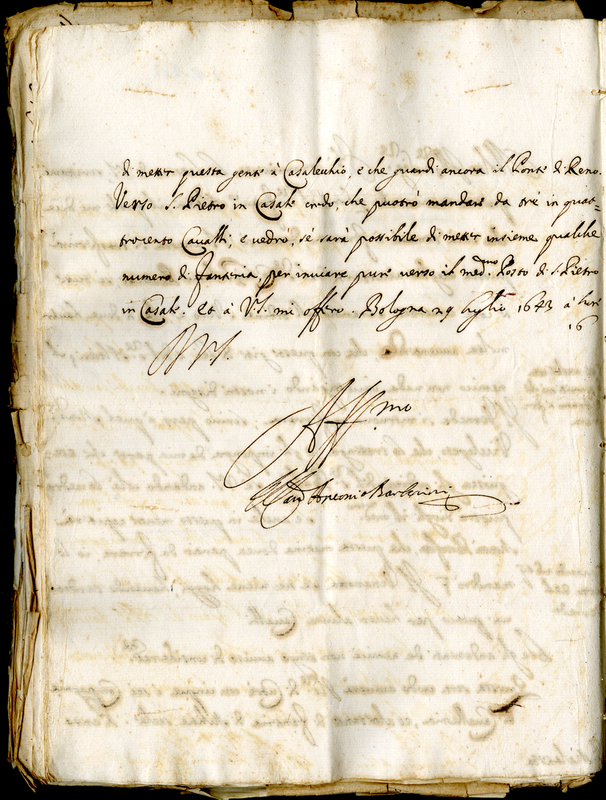 di metter questa gente à Casalechio, e che guardi ancora il Ponte di Reno.
Verso S. Pietro in Casale credo, che puotrò mandare da trè in quat
trocento Cavalli; e vedrò, sé sarà possibile di metter insieme qualche
numero di fanteria, per inviare pure verso il med.mo Posto di S. Pietro
in Casale. Et à V.S. mi offero. Bologna 29 luglio 1643 à hore
16
Aff.mo
Il Card. Antonio Barberini